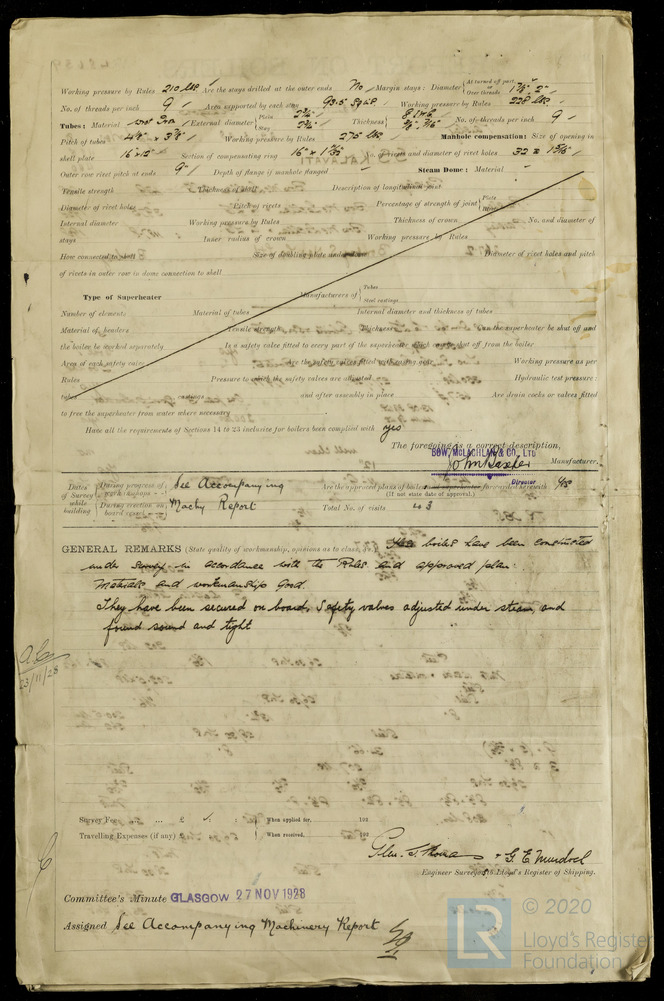 Working pressure by Rules 210 lbs Are the stays drilled at the outer ends No Margin stays: Diameter { At turned off part, or Over threads 1 7/8" 2"
No. of threads per inch 9 Area supported by each stay 93.5 sq in Working pressure by Rules 228 lbs
Tubes: Material External diameter { Plain 2 3/4" Stay 2 3/4" Thickness { 8 No. of threads per inch 9
Pitch of tubes Working pressure by Rules 275 lbs Manhole compensation: Size of opening in
shell plate 16"x12" Section of compensating ring No. of rivets and diameter of rivet holes 32
Outer row rivet pitch at ends 9" Depth of flange if manhole flanged Steam Dome: Material
Tensile strength Thickness of shell Description of longitudinal joint
Diameter of rivet holes Pitch of rivets Percentage of strength of joint { Plate Rivets
Internal diameter Working pressure by Rules Thickness of crown No. and diameter of
stays Inner radius of crown Working pressure by Rules
How connected to shell Size of doubling plate under dome Diameter of rivet holes and pitch
of rivets in outer row in dome connection to shell
Type of Superheater Manufacturers of { Tubes Steel castings
Number of elements Material of tubes Internal diameter and thickness of tubes
Material of headers Tensile strength Thickness Can the superheater be shut off and
the boiler be worked separately Is a safety valve fitted to every part of the superheater which can be shut off from the boiler
Area of each safety valve Are the safety valves fitted with easing gear Working pressure as per
Rules Pressure to which the safety valves are adjusted Hydraulic test pressure:
tubes castings and after assembly in place Are drain cocks or valves fitted
to free the superheater from water where necessary
Have all the requirements of Sections 14 to 23 inclusive for boilers been complied with yes
The foregoing is a correct description,
BOW, McLACHLAN & CO., LTD
John Baxter Manufacturer.
Director
Dates of Survey while building { During progress of work in shops - - See Accompanying Are the approved plans of boiler and superheater forwarded herewith Yes
(If not state date of approval.)
During erection on board vessel - - - Machy Report Total No. of visits 43
GENERAL REMARKS (State quality of workmanship, opinions as to class, &c. These boilers have been constructed
under survey in accordance with the Rules and approved plan.
Materials and workmanship Good.
They have been secured on board, Safety valves adjusted under steam, and
found sound and tight
23/11/28
Survey Fee ... ... £ : : } When applied for, 192
Travelling Expenses (if any) £ : : } When received, 192
G. E. Murdoch
Engineer Surveyors to Lloyd's Register of Shipping.
Committee's Minute GLASGOW 27 NOV 1928
Assigned See Accompanying Machinery Report
LR © 2020
Lloyd's Register
Foundation